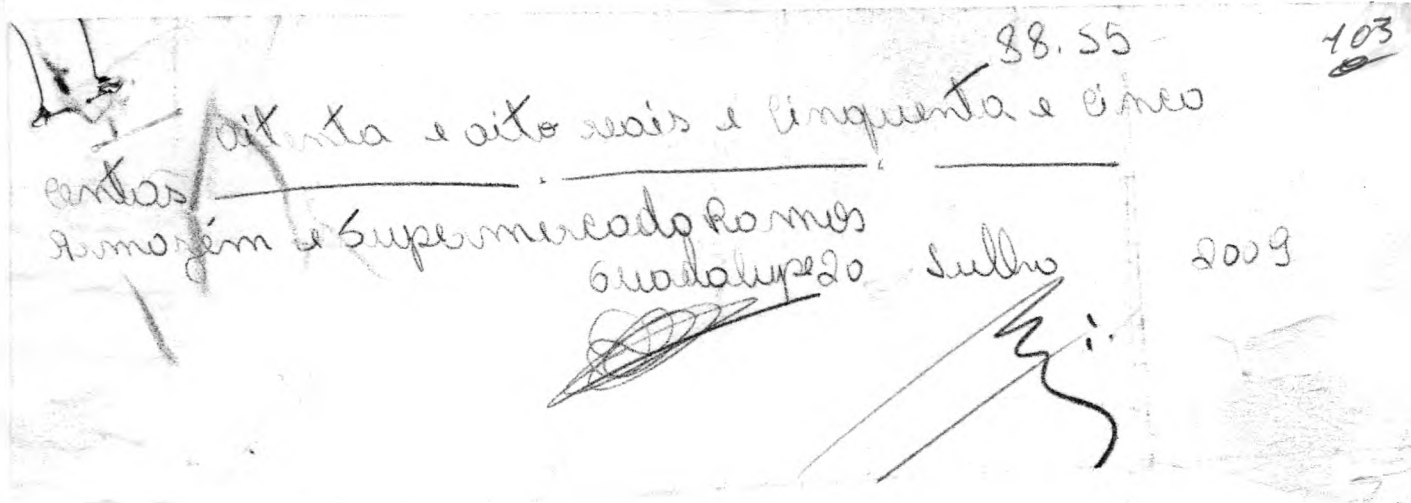 88.55
103
oitenta e oito reais e cinquenta e cinco
centas
Armazém e Supermercado Ramos
Guadalupe 20 Julho 2009